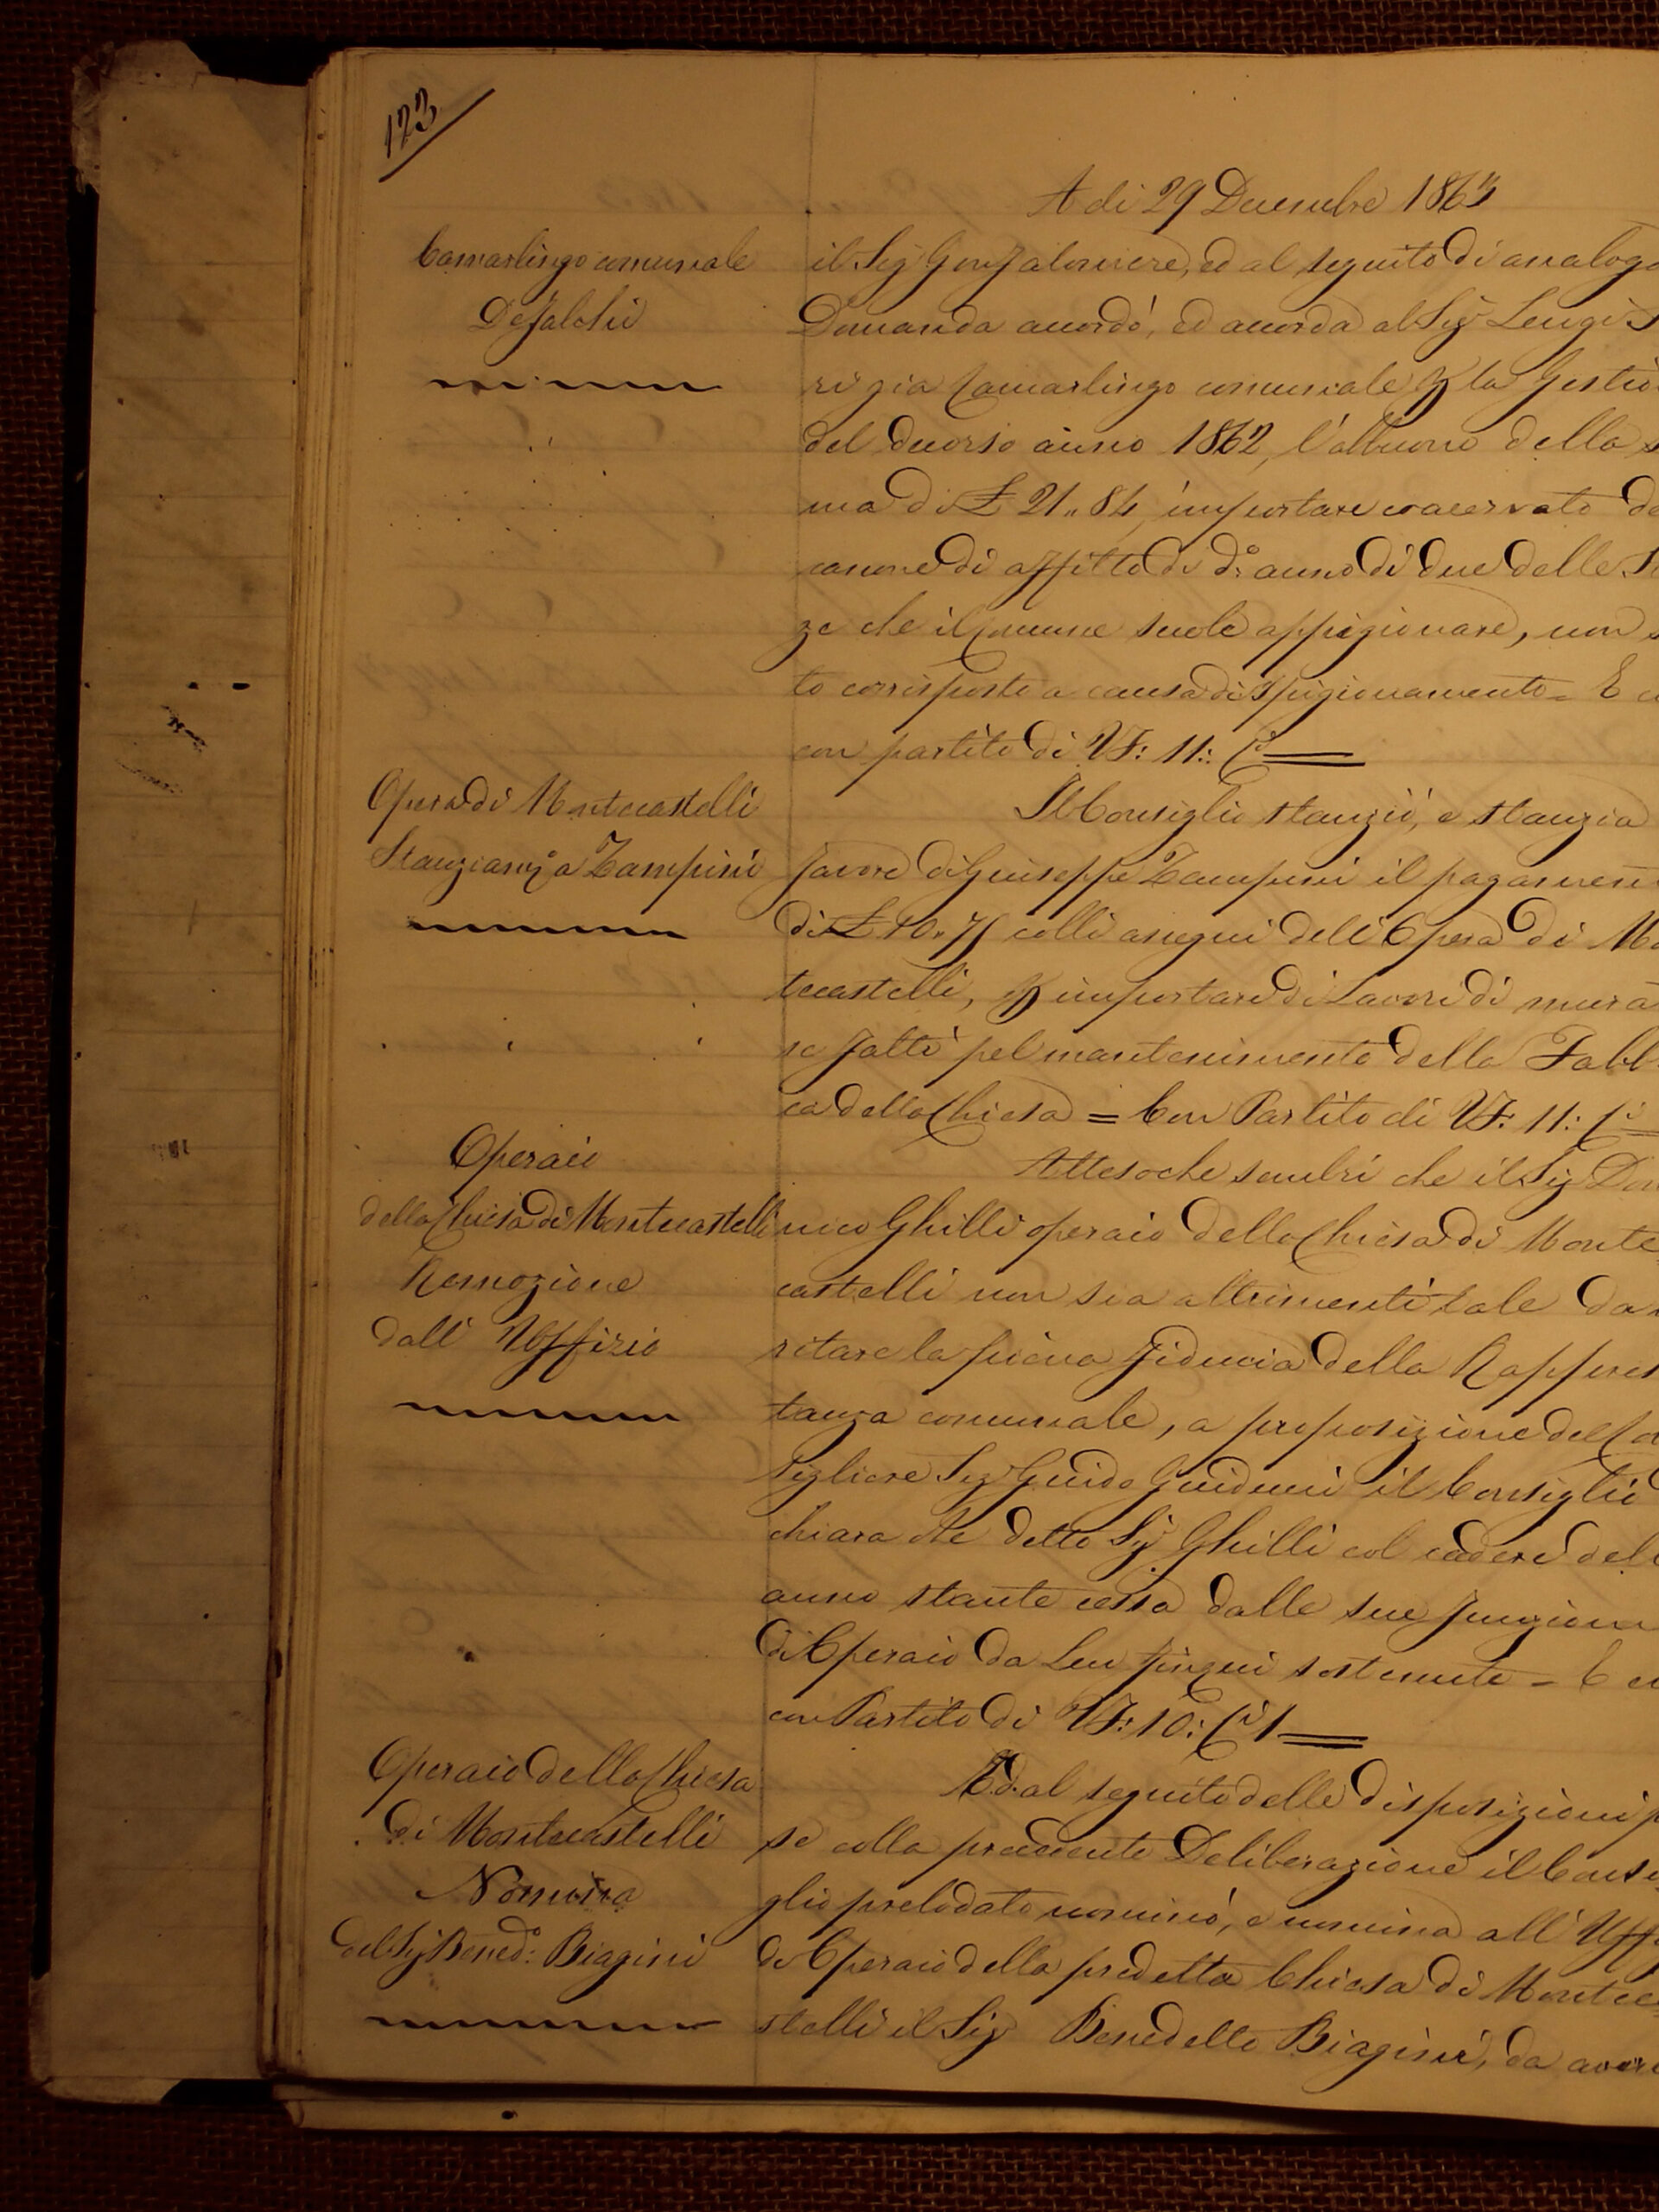 123
A di 29 Decembre 1863
Camarlingo comunale
Defalchi
il Sig Gonfaloniere, ed al seguito di analoga
Domanda accordò, ed accorda al Sig Luigi
rigia Camarlingo comunale p la Gestio
del decorso anno 1862, l'abbuono della s
ma di £ 21.. 84 importare coacervato de
canone di affitto di do: anno di due delle St
ze che il Comune suole appigionare, non s
to corrisposto a causa di spigionamento = E c
con partito di VF: 11: Ci
Opera di Montecastelli
Stanziamo a Zampini
Il Consiglio stanziò, e stanzia
favore di Giuseppe Zampini il pagamen
di £ 10.. colli assegni dell' Opera di Mo
tecastelli, p importare di Lavori di mura
re fatti pel mantenimento della Fabb
ca della Chiesa = Con Partito di VF: 11: Ci
Operaio
della Chiesa di Montecastelli
Remozione
dall' Uffizio
Attesoche sembri che il Sig Dom
nico Ghilli operaio della Chiesa di Monte
castelli non sia altrimenti tale da
ritare la piena fiducia della Rappres
tanza comunale, a proposizione del Co
sigliere Sig Guido Guiducci il Consiglio
chiara che detto Sig Ghilli col cadere del
anno stante cessa dalle sue funzioni
di Operaio da Lui finqui sostenute = E c
con Partito di VF: 10: Ci 1
Operaio della Chiesa
di Montecastelli
Nomina
del Sig Bened: Biagini
Ed al seguito delle disposizioni p
se colla precedente Deliberazione il Consi
glio prelodato nominò, e nomina all' Uffi
di Operaio della predetta Chiesa di Monteca
stelli il Sig Benedetto Biagini, da aver